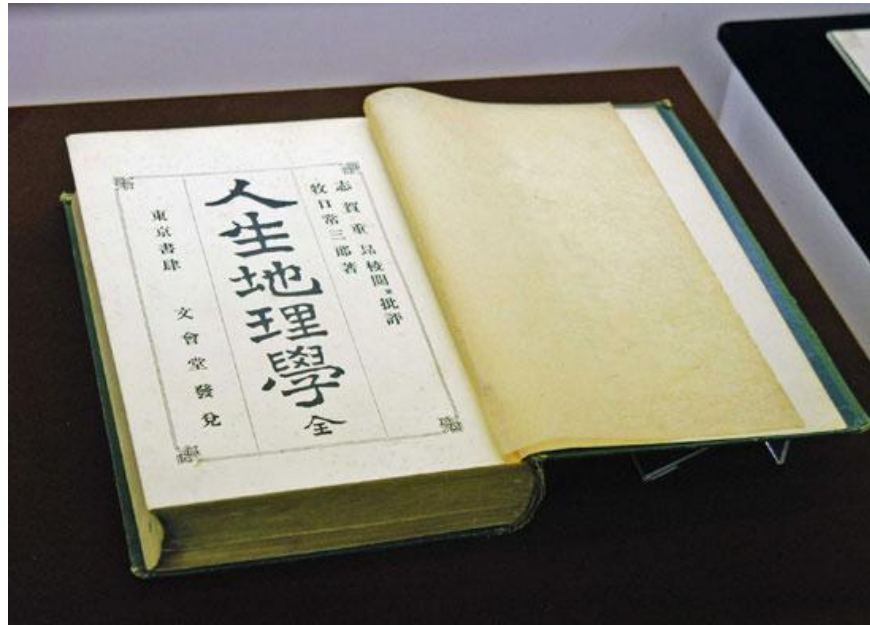 志賀重昂校閲並批評
牧口常三郎著
人生地理學
全
東京書肆 文會堂發兌